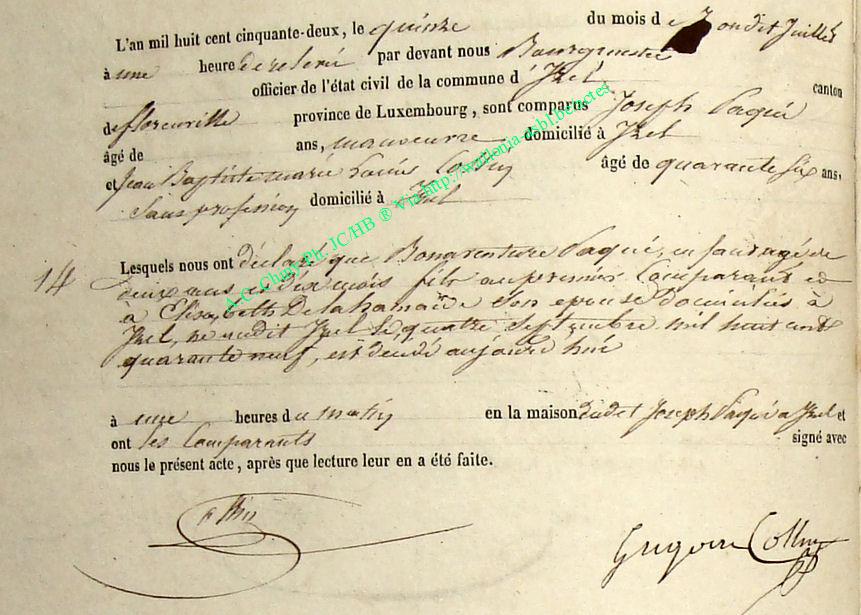 L'an mil huit cent cinquante-deux, le quinze du mois de Juillet
à une heure de relevée par devant nous Bourgmestre
officier de l'état civil de la commune d'Izel canton
de florenville province de Luxembourg, sont comparus Joseph Paqué
âgé de ans, manoeuvre domicilié à Izel
et Jean Baptiste marie Louis Collin âgé de quarante six ans,
Sans profession domicilié à Izel
14 Lesquels nous ont déclaré que Bonaventure Paqué, enfant agé de
deux ans et dix mois fils au premier Comparant et
à Elisabeth Delahamaide son epouse domiciliés à
Izel, né audit Izel le quatre Septembre mil huit cent
quarante neuf, est décédé aujourd'hui
à onze heures du matin en la maison dudit Joseph Paqué à Izel et
ont les Comparants signé avec
nous le présent acte, après que lecture leur en a été faite.
Collin
A.C. Chiny Ph. JC/HB ® Via http://wallonia-asbl.be/actes